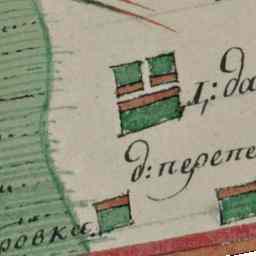 д: да
д: перепе
ровка.